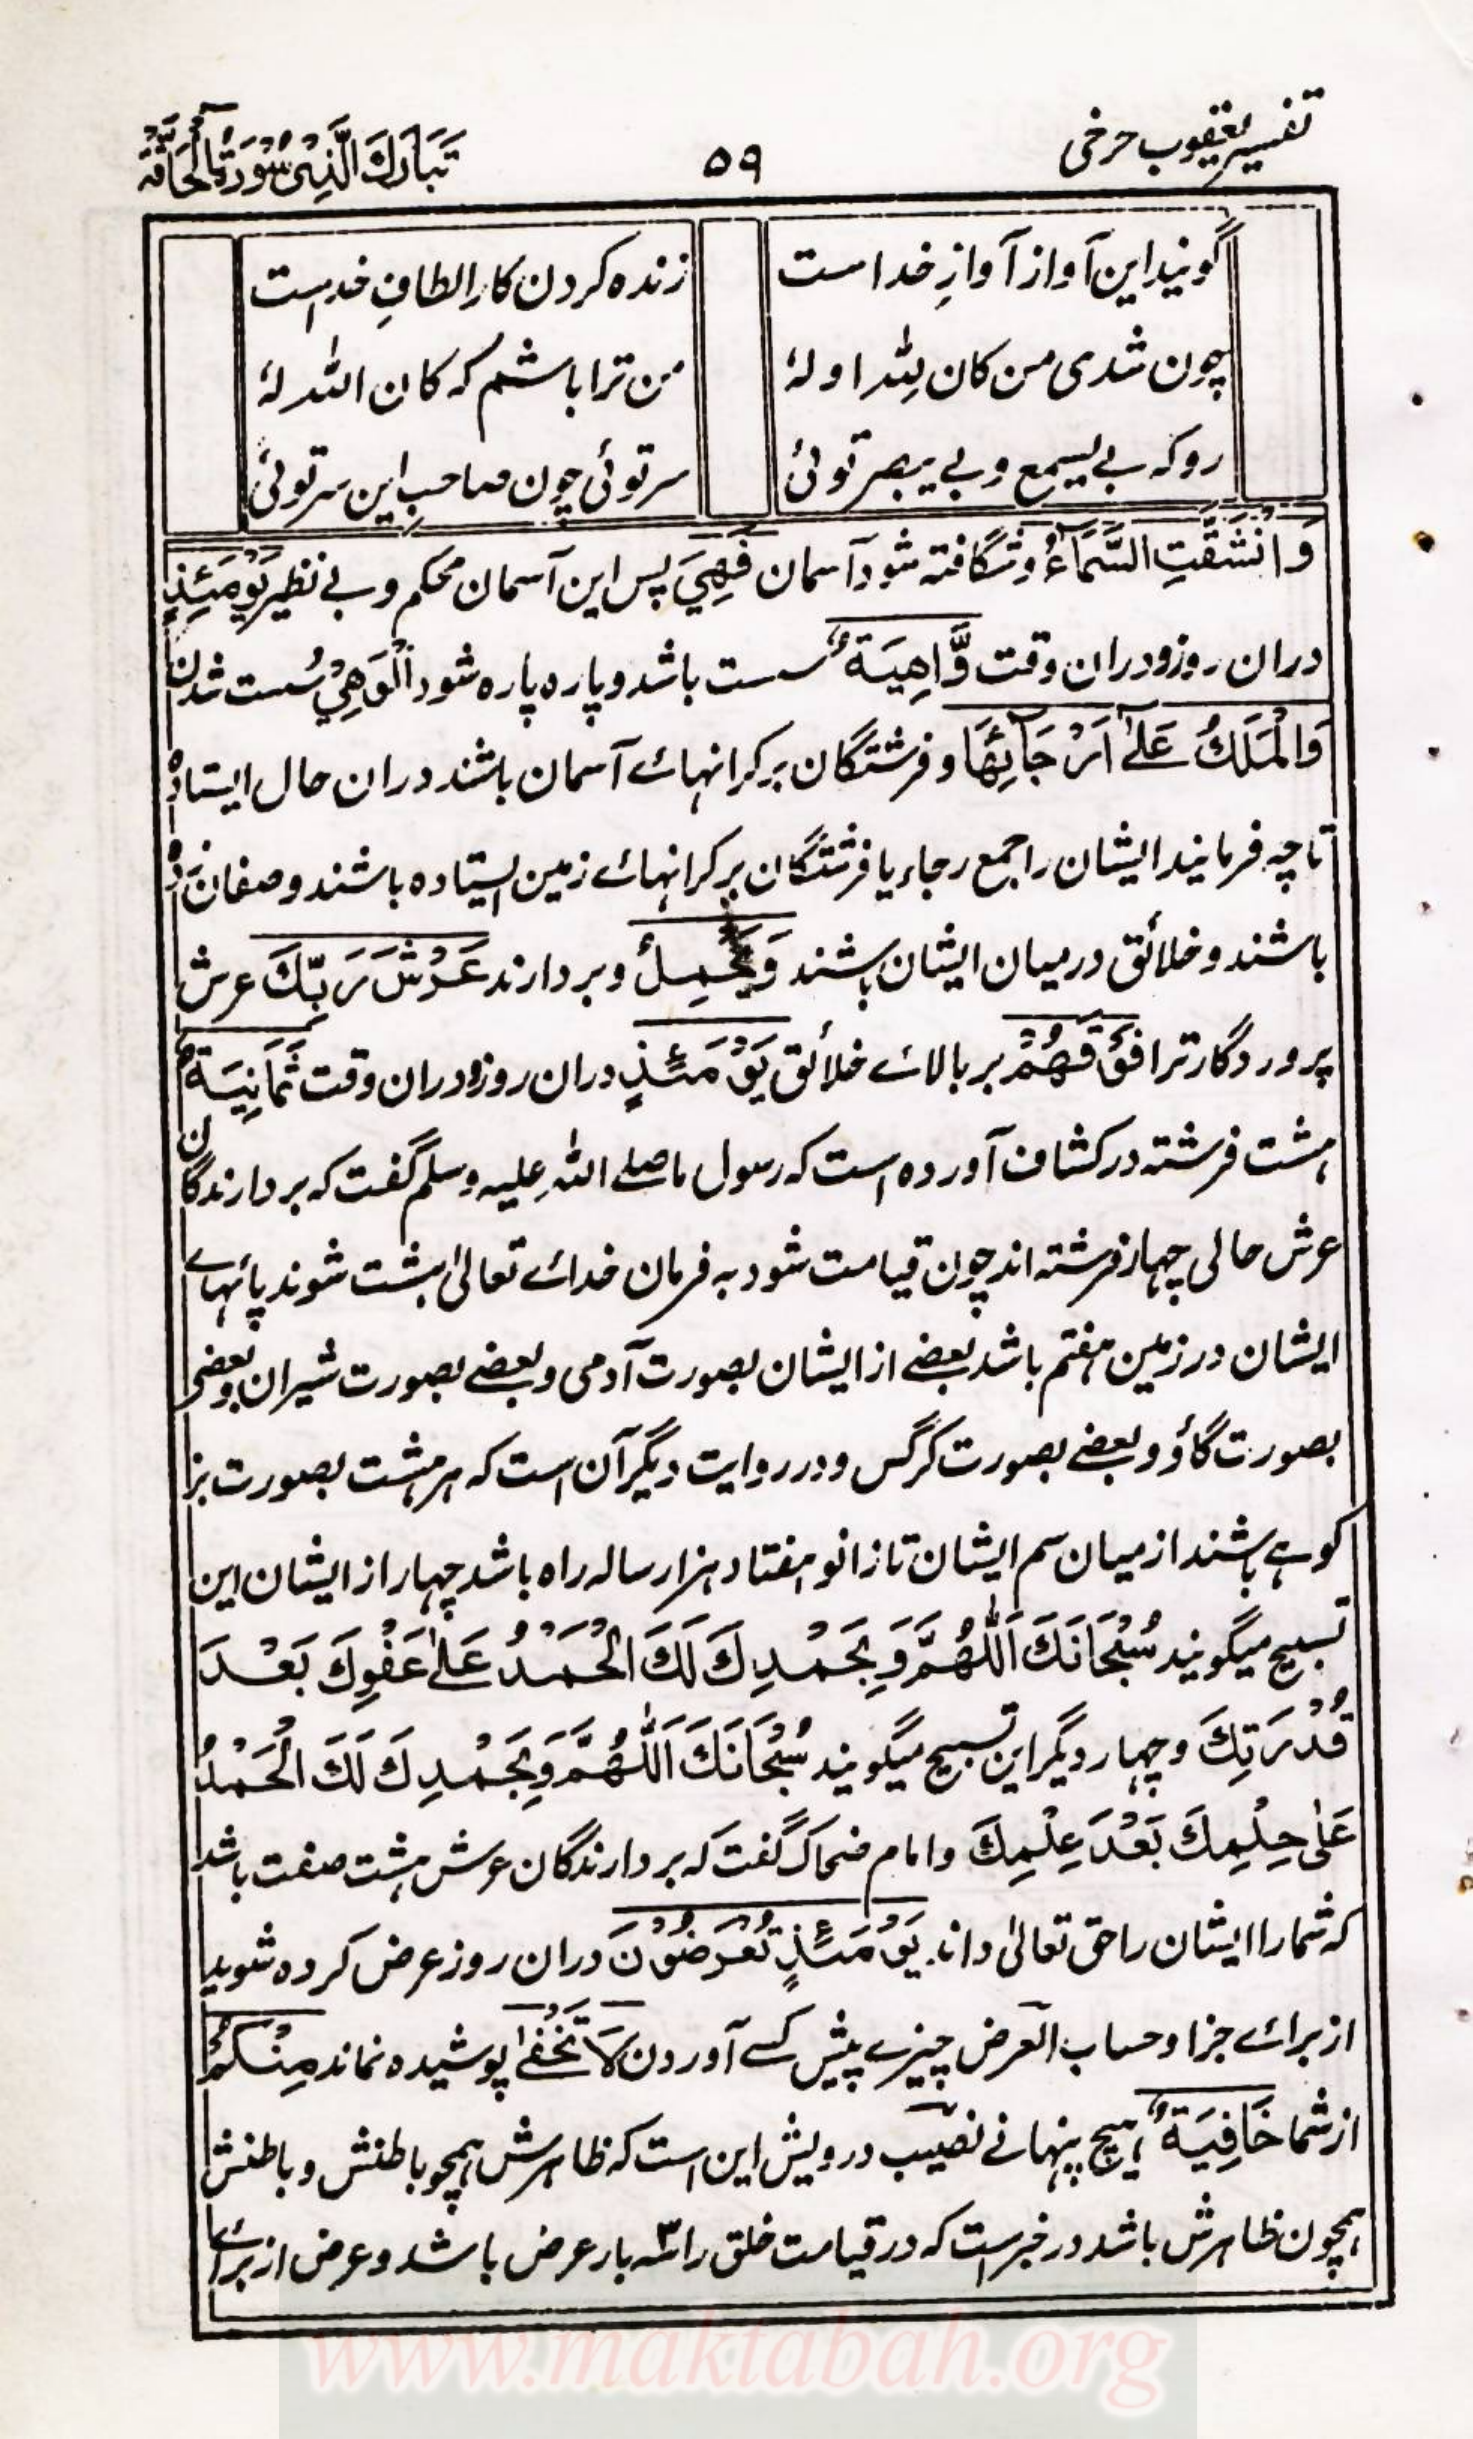 تفسیر یعقوب حرخی
۵۹
تَبَارَكَ الَّذِیْ سُوْرَةُ الْحَاقَّة
گونید این آواز آوازِ خداست
زنده کردن کارِ الطافِ خداست
چون شدی من کان لِلّٰہ او لہٗ
من ترا باشم کہ کان اللّٰہ لہٗ
رو کہ بے یسمع و بے یبصر توئی
سر توئی چون صاحبِ این سر توئی
وَانْشَقَّتِ السَّمَآءُ وشگافتہ شود آسمان فَهِيَ پس این آسمان محکم و بے نظیر يَوْمَئِذٍ
دران روزو دران وقت وَّاهِيَةٌ سست باشد و پارہ پارہ شود اَلْوَهِيْ سُست شدن
وَالْمَلَكُ عَلٰٓى اَرْجَآئِهَا و فرشتگان بر کرانہائے آسمان باشند دران حال ایستادہ
تا چہ فرمایند ایشان را جمع رجاء یا فرشتگان بر کرانہائے زمین ایستادہ باشند و صفان زدہ
باشند و خلائق درمیان ایشان باشند وَيَحْمِلُ و بردارند عَرْشَ رَبِّكَ عرش
پروردگار ترا فَوْقَهُمْ بر بالائے خلائق يَوْمَئِذٍ دران روزو دران وقت ثَمَانِيَةٌ
ہشت فرشتہ در کشاف آوردہ است کہ رسول ما صلے اللہ علیہ وسلم گفت کہ بردارندگان
عرش حالی چہار فرشتہ اند چون قیامت شود بہ فرمان خدائے تعالیٰ ہشت شوند پائہائے
ایشان در زمین ہفتم باشد بعضے از ایشان بصورت آدمی و بعضے بصورت شیران و بعضی
بصورت گاؤ و بعضے بصورت کرگس و در روایت دیگر آن است کہ ہر ہشت بصورت بز
کوہے باشند از میان سم ایشان تا زانو ہفتاد ہزار سالہ راہ باشد چہار از ایشان این
تسبیح میگویند سُبْحَانَكَ اَللّٰهُمَّ وَبِحَمْدِكَ لَكَ الْحَمْدُ عَلٰى عَفْوِكَ بَعْدَ
قُدْرَتِكَ و چہار دیگر این تسبیح میگویند سُبْحَانَكَ اَللّٰهُمَّ وَبِحَمْدِكَ لَكَ الْحَمْدُ
عَلٰى حِلْمِكَ بَعْدَ عِلْمِكَ و امام ضحاک گفت کہ بردارندگان عرش ہشت صفت باشد
کہ شمار ایشان را حق تعالیٰ داند يَوْمَئِذٍ تُعْرَضُوْنَ دران روز عرض کردہ شوید
از برائے جزا و حساب العرض چیزے پیش کسے آوردن لَا تَخْفٰى پوشیدہ نماند مِنْكُمْ
از شما خَافِيَةٌ ہیچ پنہانے نصیب درویش این است کہ ظاہرش ہمچو باطنش و باطنش
ہمچون ظاہرش باشد در خبر است کہ در قیامت خلق را سہ بار عرض باشد و عرض از برائے
www.maktabah.org